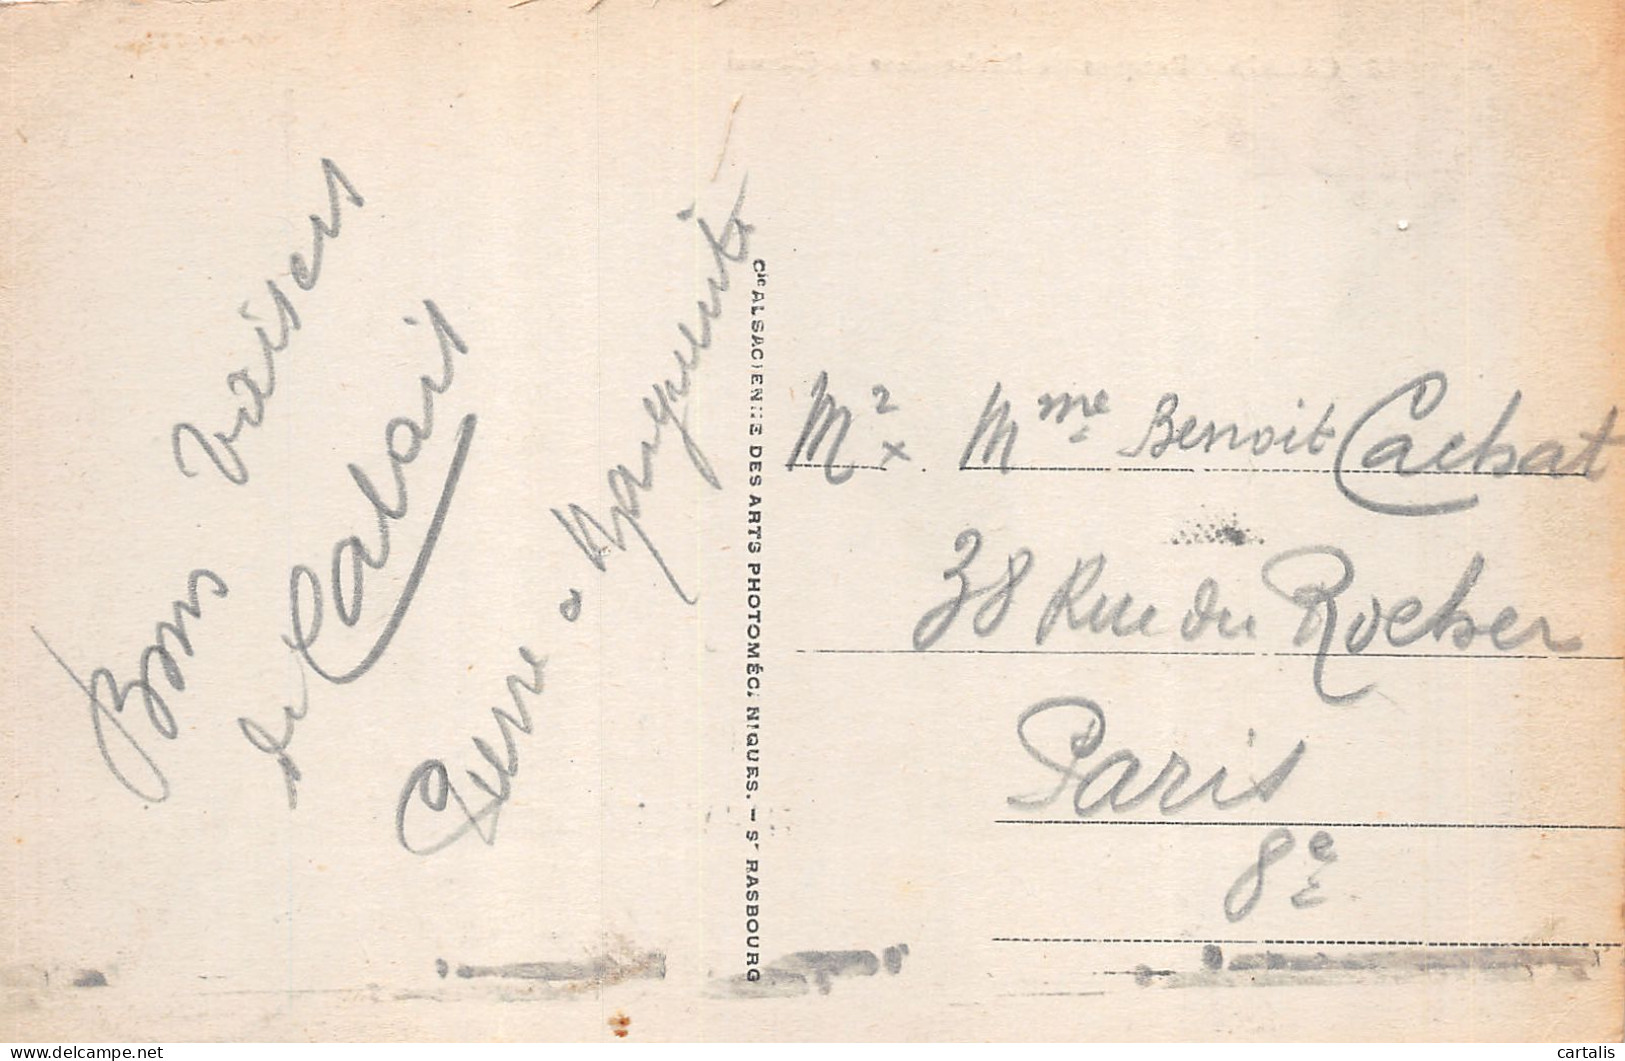 Bons baisers
de Calais
Pierre & Marguerite
Cie ALSACIENNE DES ARTS PHOTOMÉCANIQUES. — STRASBOURG
Mr x. Mme Benoit Cachat
38 Rue du Rocher
Paris
8e
cartalis
delcampe.net